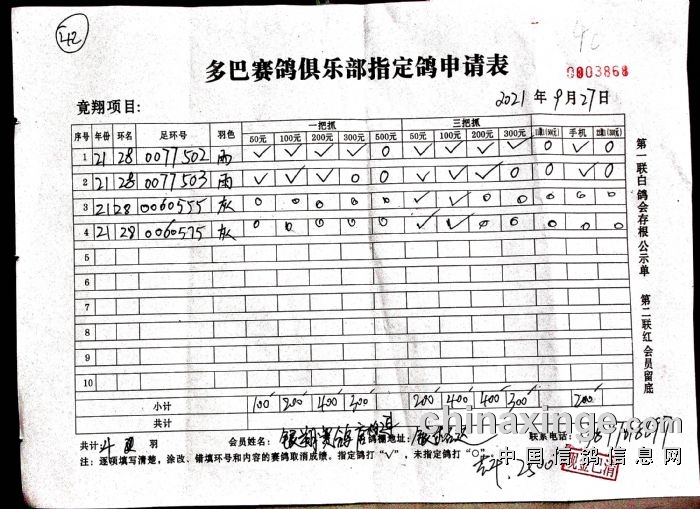 42
多巴赛鸽俱乐部指定鸽申请表
0003868
竟翔项目:
2021 年 9 月 27 日
一把抓 三把抓
序号 年份 环名 足环号 羽色 50元 100元 200元 300元 500元 50元 100元 200元 300元 手机
1 21 28 0077502 雨 ✓ ✓ ✓ ✓ 0 ✓ ✓ ✓ ✓ 0 ✓ 0
2 21 28 0077503 雨 ✓ ✓ ✓ 0 0 ✓ ✓ ✓ 0 0 ✓ 0
3 21 28 0060555 灰 0 0 0 0 0 ✓ ✓ 0 0 0 0 0
4 21 28 0060575 灰 0 0 0 0 0 ✓ ✓ 0 0 0 0 0
5
6
7
8
9
10
小计 100 200 400 300 200 400 400 300 200
共计
共计 羽 会员姓名: 银翔赛鸽 鸽棚地址: 联系电话:
注: 逐项填写清楚，涂改、错填环号和内容的赛鸽取消成绩。指定鸽打“✓”，未指定鸽打“○”。
2500
现金已清
第一联白 鸽会存根 公示单 第二联红 会员留底
www.chinaxinge.com
中国信鸽信息网